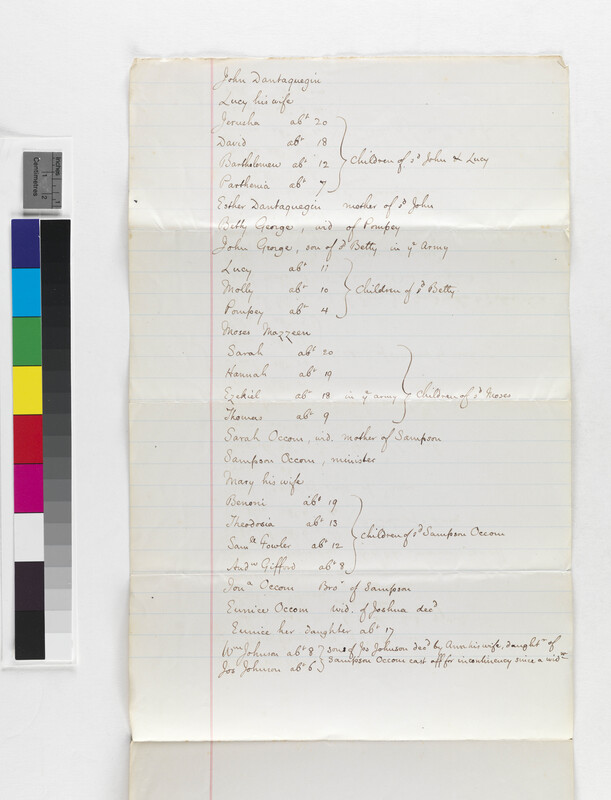 John Dantaquegin
Lucy his wife
Jerusha abt 20
David abt 18
Bartholomew abt 12
Parthenia abt 7
Children of sd John & Lucy
Esther Dantaquegin mother of sd John
Betty George, wid of Pompey
John George, son of sd Betty in ye Army
Lucy abt 17
Molly abt 10
Pompey abt 4
Children of sd Betty
Moses Mazzeen
Sarah abt 20
Hannah abt 19
Ezekiel abt 18 in ye army
Thomas abt 9
Children of sd Moses
Sarah Occom, wid. mother of Sampson
Sampson Occom, minister
Mary his wife
Benoni abt 19
Theodosia abt 13
Saml Fowler abt 12
Andw Gifford abt 8
Children of sd Sampson Occom
Jona Occom Bror of Sampson
Eunice Occom wid. of Joshua decd
Eunice her daughter abt 17
Wm Johnson abt 8
Jos Johnson abt 6
sons of Jos Johnson decd by Ann his wife, daughtr of
Sampson Occom cast off for incontinency since a widw
Centimetres
Inches